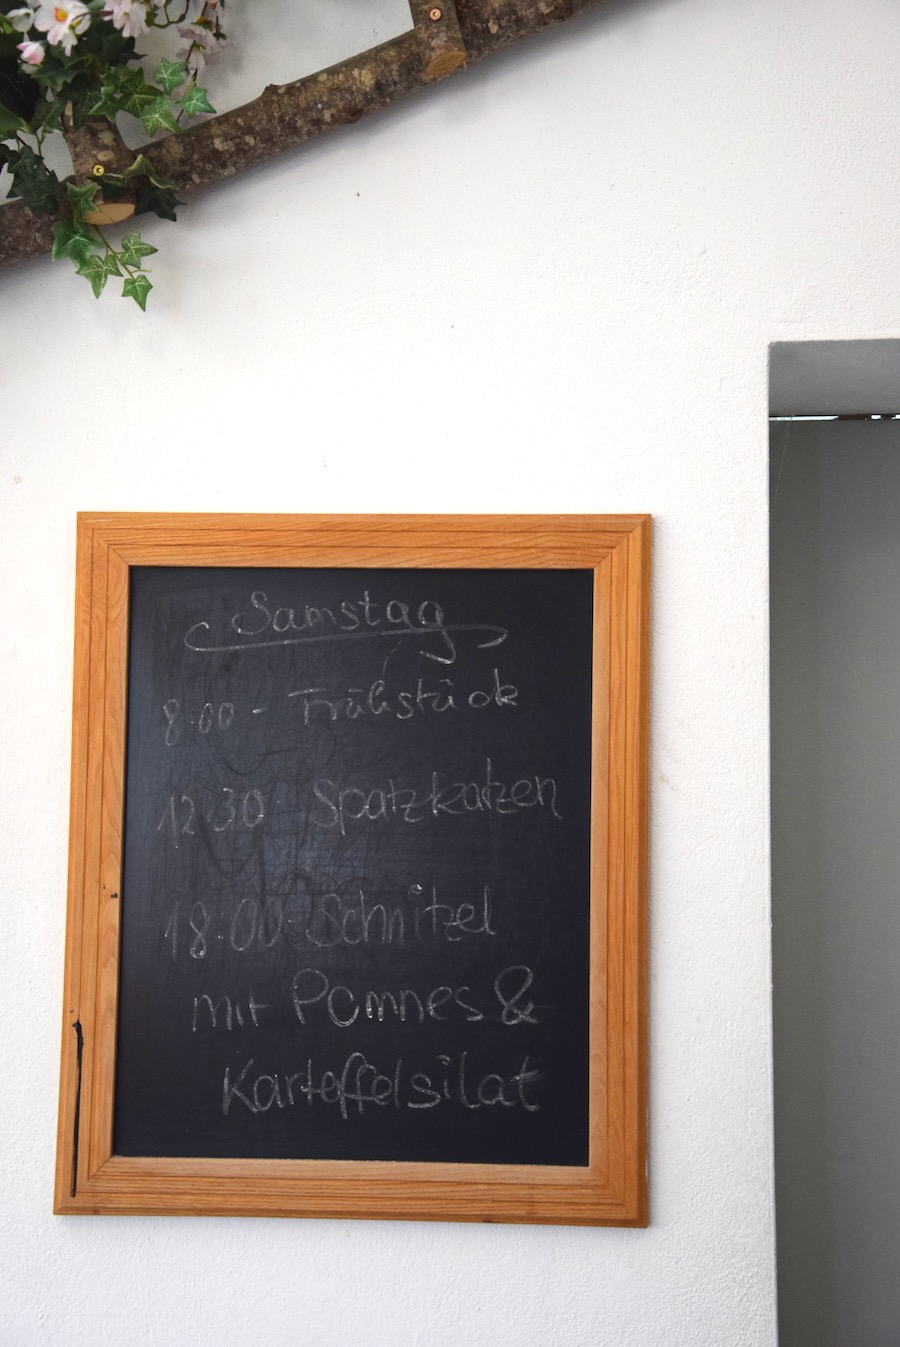 Samstag
8:00 - Frühstück
12:30 Spatzkatzen
18:00 Schnitzel
mit Pommes &
Kartoffelsilat